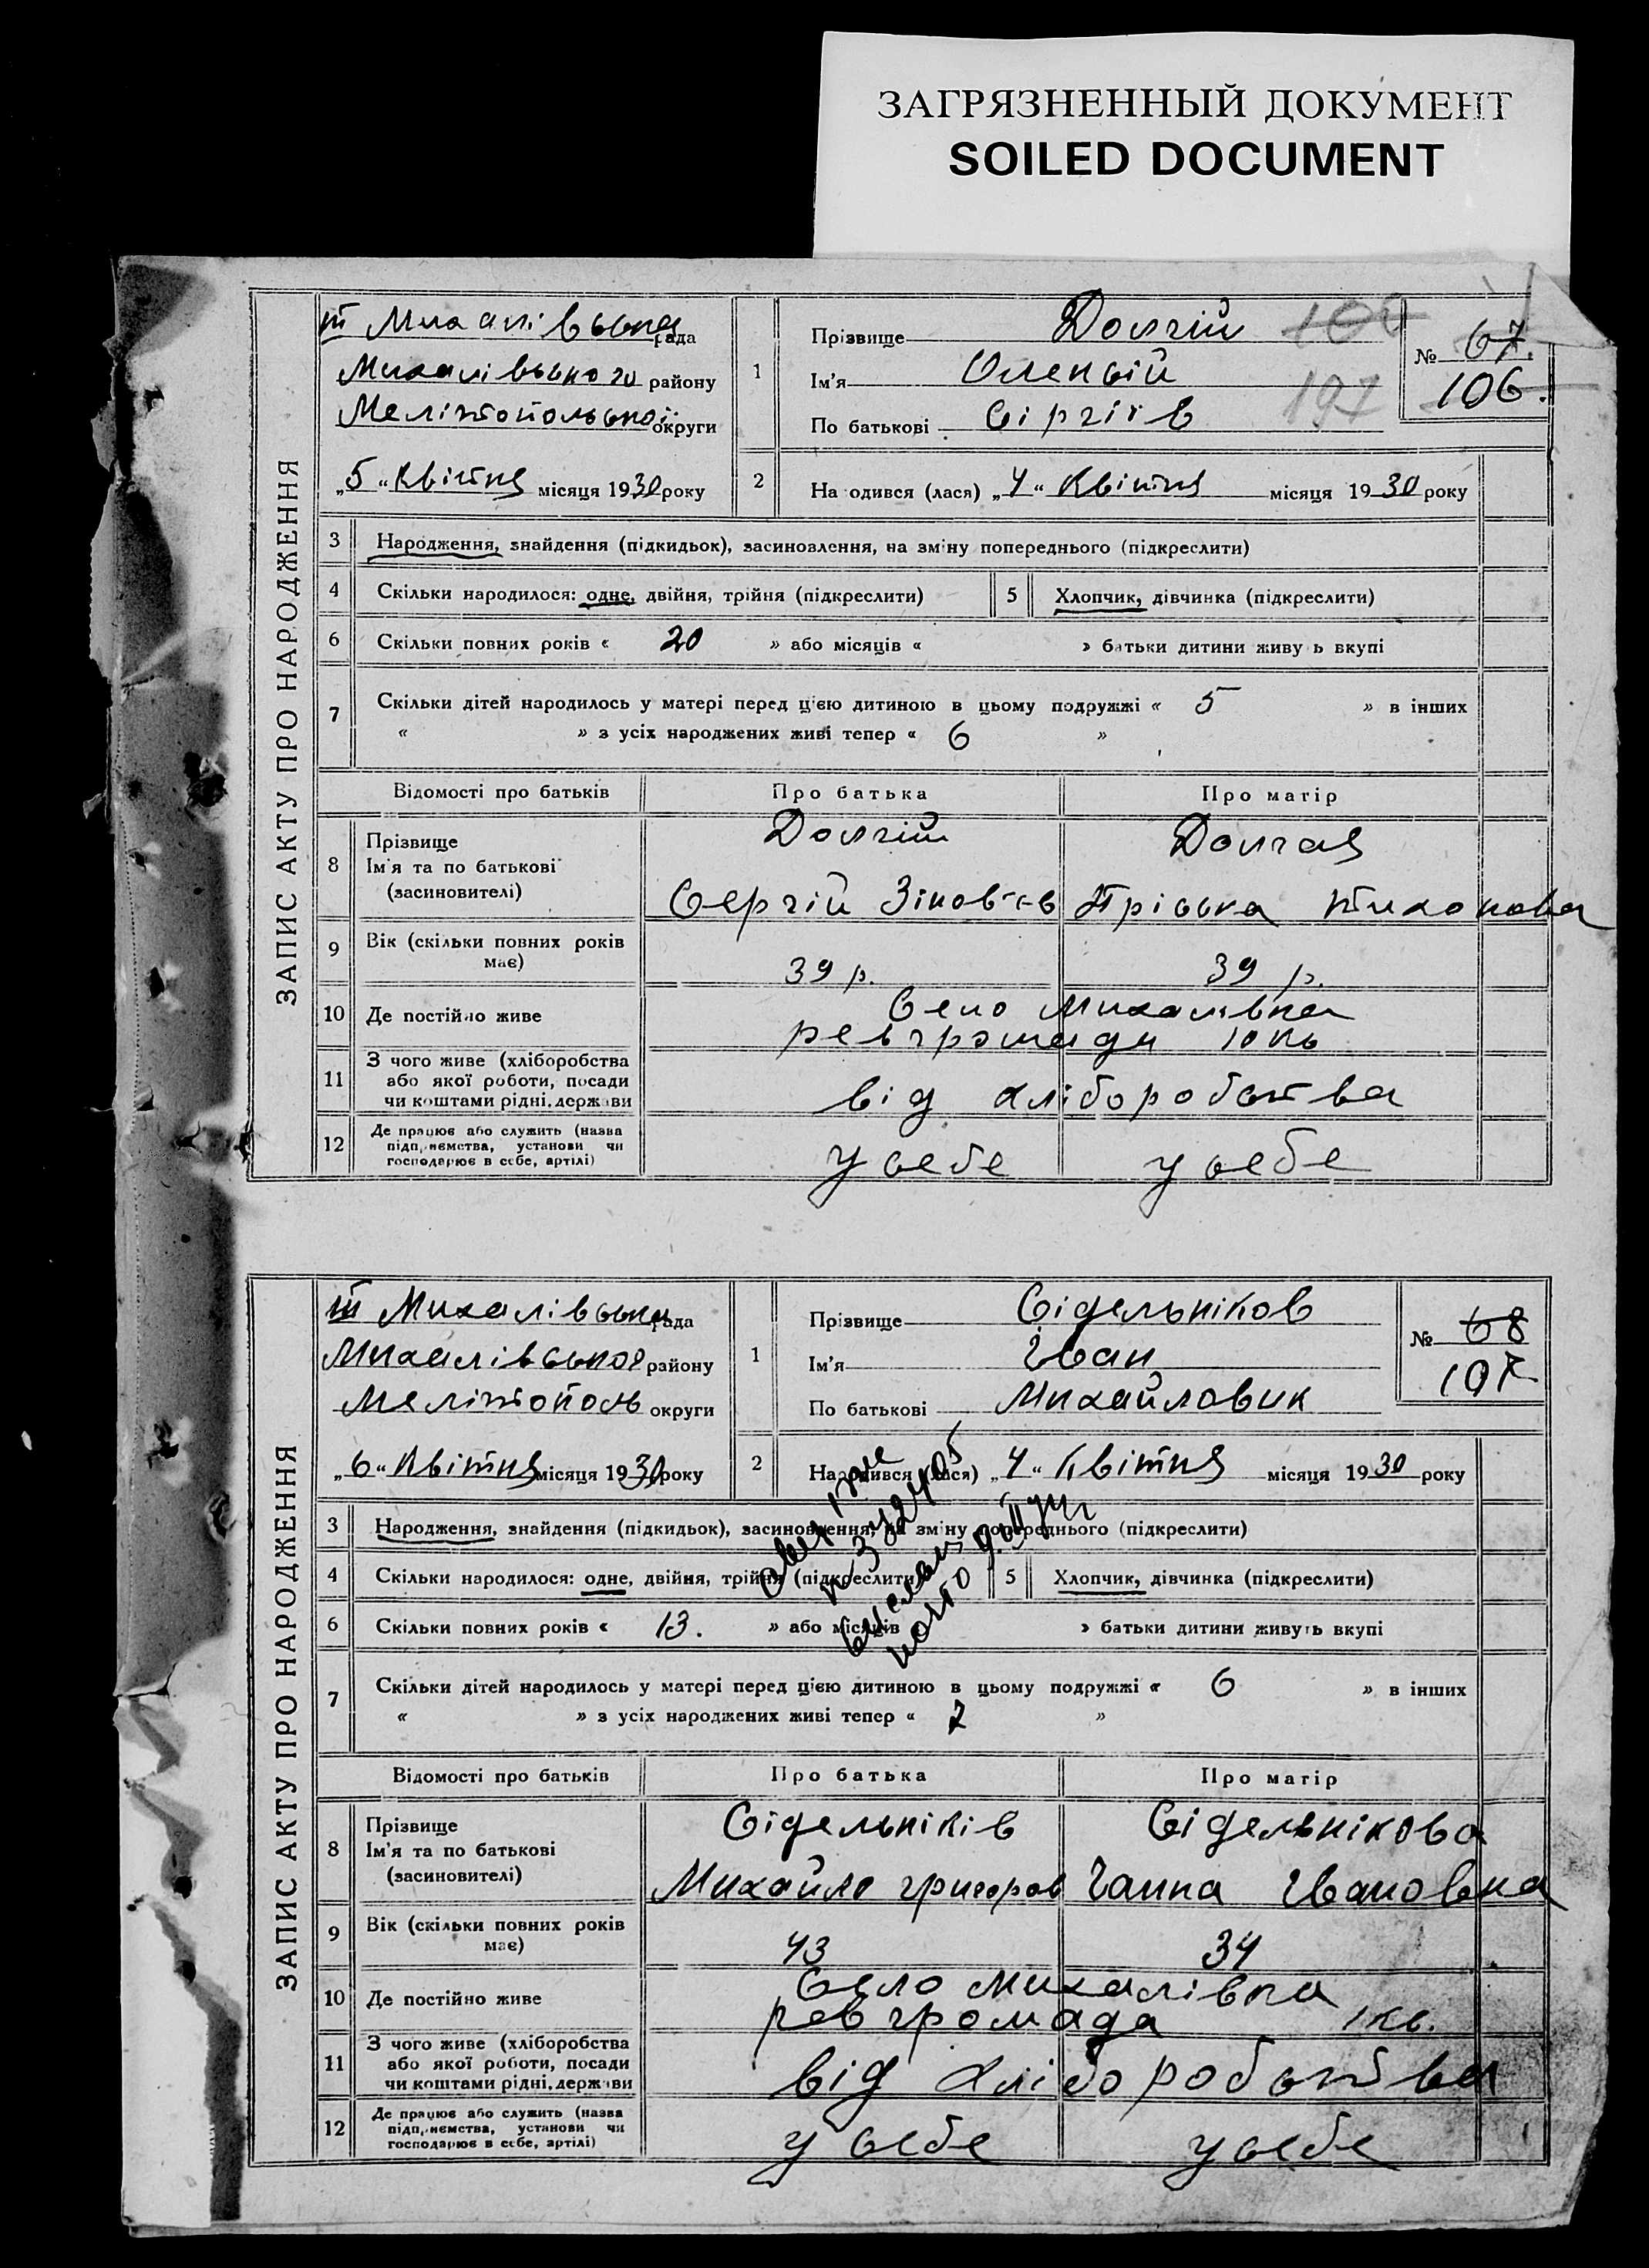 ЗАГРЯЗНЕННЫЙ ДОКУМЕНТ
SOILED DOCUMENT
ЗАПИС АКТУ ПРО НАРОДЖЕННЯ
рада
Михалівського району
Мелітопольської округи
„5“ Квітня місяця 1930 року
1
Прізвище Долгій
Ім'я Олексій
По батькові Сергіїв
№ 67.
106.
197
2
На одився (лася) „4“ Квітня місяця 1930 року
3 Народження, знайдення (підкидьок), засиновлення, на зміну попереднього (підкреслити)
4 Скільки народилося: одне, двійня, трійня (підкреслити) 5 Хлопчик, дівчинка (підкреслити)
6 Скільки повних років « 20 » або місяців « » батьки дитини живу ь вкупі
7 Скільки дітей народилось у матері перед цією дитиною в цьому подружжі « 5 » в інших
« » з усіх народжених живі тепер « 6 »
Відомості про батьків Про батька Про матір
8 Прізвище
Ім'я та по батькові
(засиновителі)
Долгій Долгая
Сергій Зіновєв Пріська Тихонова
9 Вік (скільки повних років
має)
39 р. 39 р.
10 Де постійно живе
Село Михалівка
ревгромади 10 кв
11 З чого живе (хліборобства
або якої роботи, посади
чи коштами рідні, держави
від хліборобства
12 Де працює або служить (назва
підприємства, установи чи
господарює в себе, артілі)
у себе у себе
ЗАПИС АКТУ ПРО НАРОДЖЕННЯ
ІІІ Михалівська рада
Михалівського району
Мелітополь округи
„6“ Квітня місяця 1930 року
1
Прізвище Сідельніков
Ім'я Іван
По батькові Михайлович
№ 68
107
2
Народився (лася) „4“ Квітня місяця 1930 року
3 Народження, знайдення (підкидьок), засиновлення, на зміну попереднього (підкреслити)
4 Скільки народилося: одне, двійня, трійня (підкреслити) 5 Хлопчик, дівчинка (підкреслити)
6 Скільки повних років « 13. » або місяців « » батьки дитини живуть вкупі
7 Скільки дітей народилось у матері перед цією дитиною в цьому подружжі « 6 » в інших
« » з усіх народжених живі тепер « 7 »
Відомості про батьків Про батька Про матір
8 Прізвище
Ім'я та по батькові
(засиновителі)
Сідельніків Сідельнікова
Михайло григоров Ганна Івановна
9 Вік (скільки повних років
має)
43 34
10 Де постійно живе
Село Михалівка
ревгромада 1 кв.
11 З чого живе (хліборобства
або якої роботи, посади
чи коштами рідні, держави
від хліборобства
12 Де працює або служить (назва
підприємства, установи чи
господарює в себе, артілі)
у себе у себе